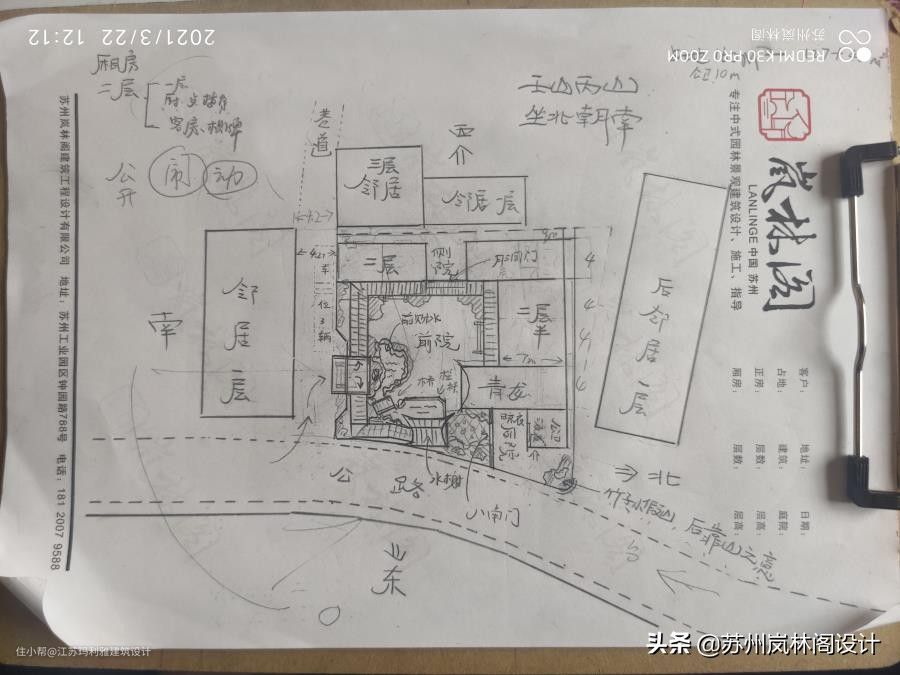 2021/3/22 12:12
苏州岚林阁
REDMI K30 PRO ZOOM
厢房
二层
一层
客房、棋牌
公开
闹
动
巷道
西
介
壬山丙山
坐北朝南
三层
邻居
邻居一层
4.2
二层
侧院
月洞门
4
4
4
4
车位3辆
前院
二层半
7m
邻居一层
南
青龙
桥
晾衣
后院
公路
水榭
小南门
后邻居一层
⇒北
竹子、假山,后靠山之意
东
岚林阁
LANLINGE 中国 苏州
专注中式园林景观建筑设计、施工、指导
客户: 地址: 日期:
占地: 建筑: 庭院:
正房: 层数: 层高:
厢房: 层数: 层高:
苏州岚林阁建筑工程设计有限公司 地址:苏州工业园区钟园路788号 电话:181 2007 9588
住小帮@江苏玛利雅建筑设计
头条 @苏州岚林阁设计